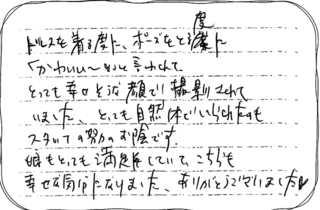 度
ドレスを着る度に、ポーズをとる度に
「かわいい〜」と言われて
とっても幸せそうな顔で撮影されて
いました。とても自然体でいられたのも
スタッフの努力のお陰です。
娘もとっても満足していて、こちらも
幸せな気分になりました。ありがとうございました